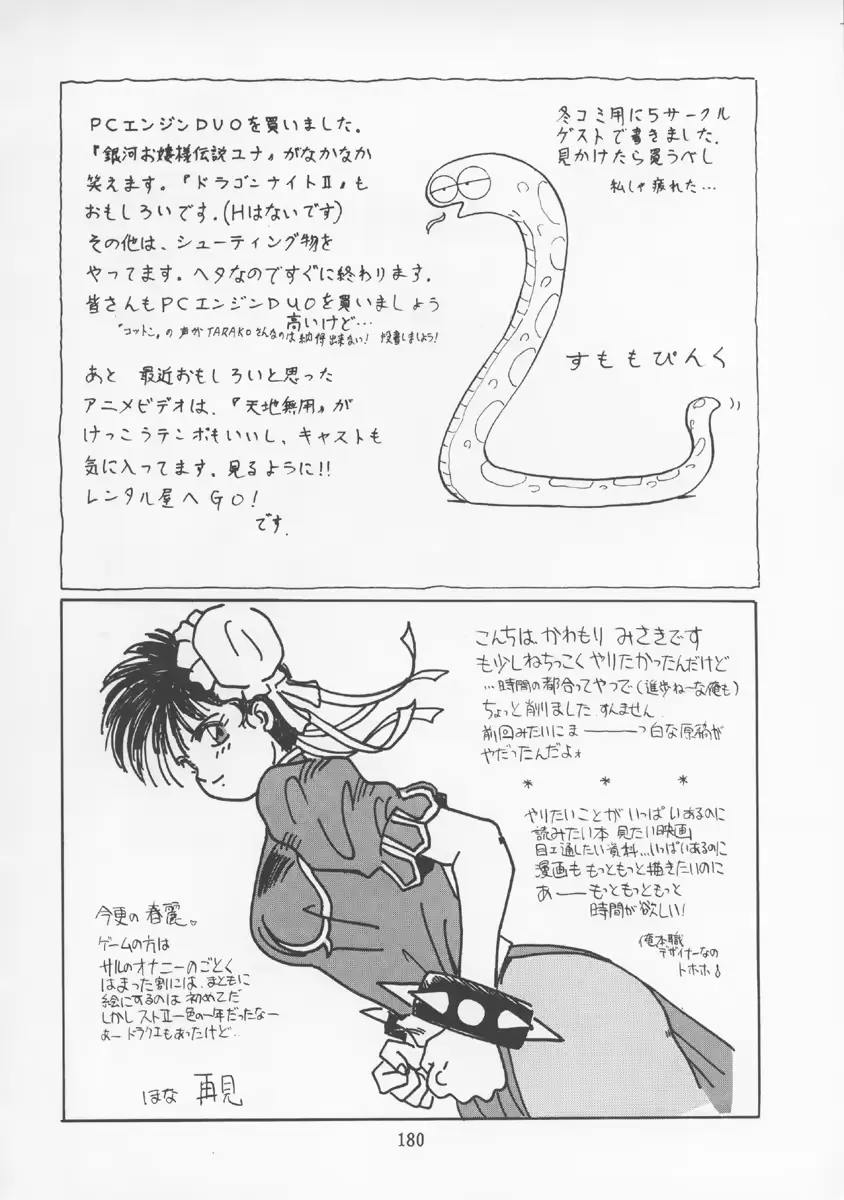 PCエンジンDUOを買いました。
『銀河お嬢様伝説ユナ』がなかなか
笑えます。『ドラゴンナイトⅡ』も
おもしろいです。(Hはないです)
その他は、シューティング物を
やってます。ヘタなのですぐに終わります。
皆さんもPCエンジンDUOを買いましょう
高いけど…
『コットン』の声がTARAKOそんなのは納得出来ない! 投書しましょう!
あと 最近おもしろいと思った
アニメビデオは、『天地無用』が
けっこうテンポもいいし、キャストも
気に入ってます。見るように!!
レンタル屋へGO!
です.
冬コミ用に5サークル
ゲストで書きました.
見かけたら買うべし
私しゃ疲れた…
すももぴんく
こんちは かわもり みさきです
も少しねちっこく やりたかったんだけど
…時間の都合ってやつで(進歩ね〜な俺も)
ちょっと削りました すんません
前回みたいにま―――っ白な原稿が
やだったんだよォ
* * *
やりたいことが いっぱいあるのに
読みたい本 見たい映画
目ェ通したい資料…いっぱいあるのに
漫画も もっともっと描きたいのに
あ――もっともっともっと
時間が欲しい!
俺本職
デザイナーなの
トホホ
今更の 春麗。
ゲームの方は
サルのオナニーのごとく
はまった割には、まともに
絵にするのは 初めてだ
しかし ストⅡ一色の一年だったなー
あー ドラクエもあったけど…
ほな 再見
180